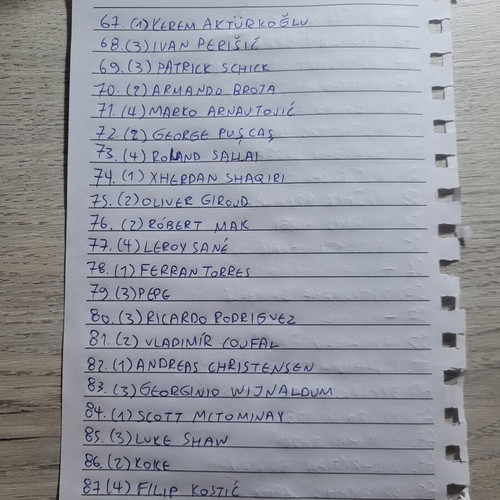 67. (1) KEREM AKTÜRKOĞLU
68. (3) IVAN PERIŠIĆ
69. (3) PATRICK SCHICK
70. (2) ARMANDO BROJA
71. (4) MARKO ARNAUTOVIĆ
72. (2) GEORGE PUȘCAȘ
73. (4) ROLAND SALLAI
74. (1) XHERDAN SHAQIRI
75. (2) OLIVER GIROUD
76. (2) RÓBERT MAK
77. (4) LEROY SANÉ
78. (1) FERRAN TORRES
79. (3) PEPE
80. (3) RICARDO RODRIGUEZ
81. (2) VLADIMÍR COUFAL
82. (1) ANDREAS CHRISTENSEN
83. (3) GEORGINIO WIJNALDUM
84. (1) SCOTT MCTOMINAY
85. (3) LUKE SHAW
86. (2) KOKE
87 (4) FILIP KOSTIĆ